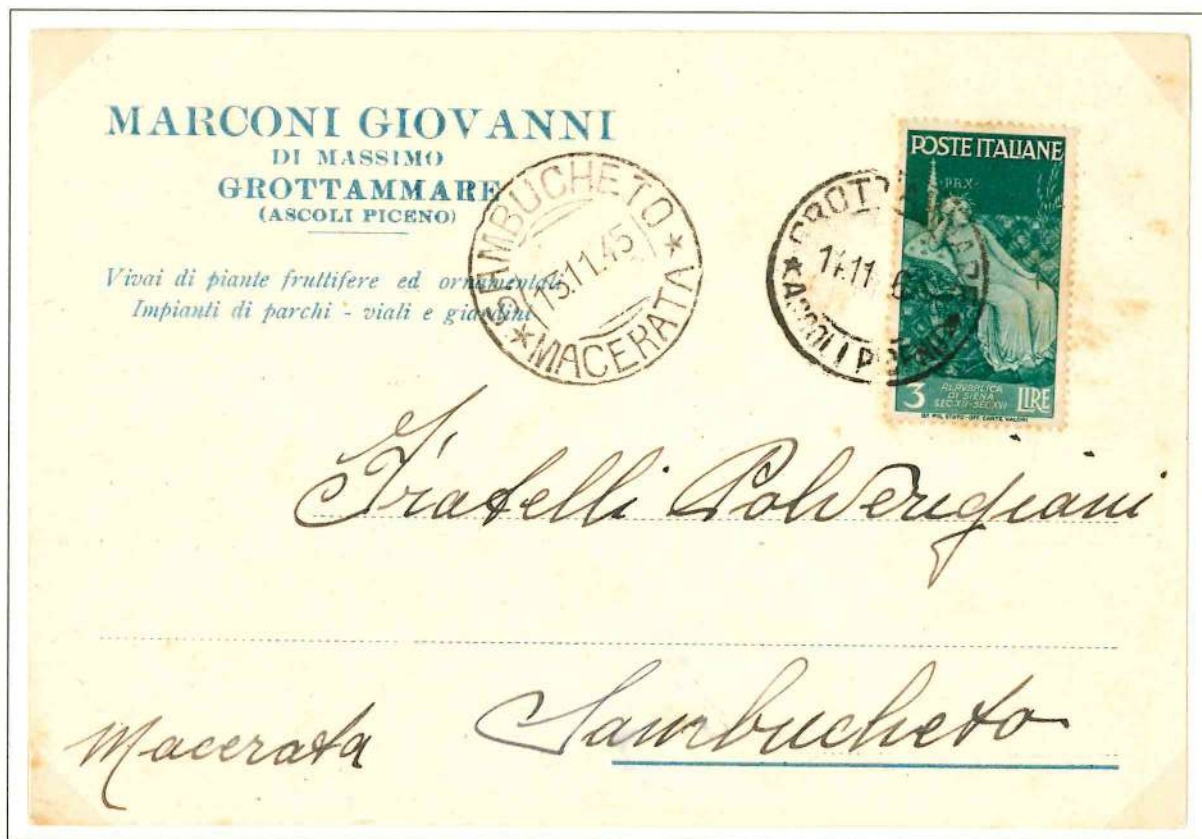 MARCONI GIOVANNI
DI MASSIMO
GROTTAMMARE
(ASCOLI PICENO)
Vivai di piante fruttifere ed ornamentali
Impianti di parchi - viali e giardini
SAMBUCHETO
15.11.45
* MACERATA *
14.11
* ASCOLI PICENO *
POSTE ITALIANE
3
REPVBBLICA
DI SIENA
SEC·XII-SEC·XVI
LIRE
IST. POL. STATO - OFF. CARTE VALORI
Fratelli Polverigiani
Macerata Sambucheto